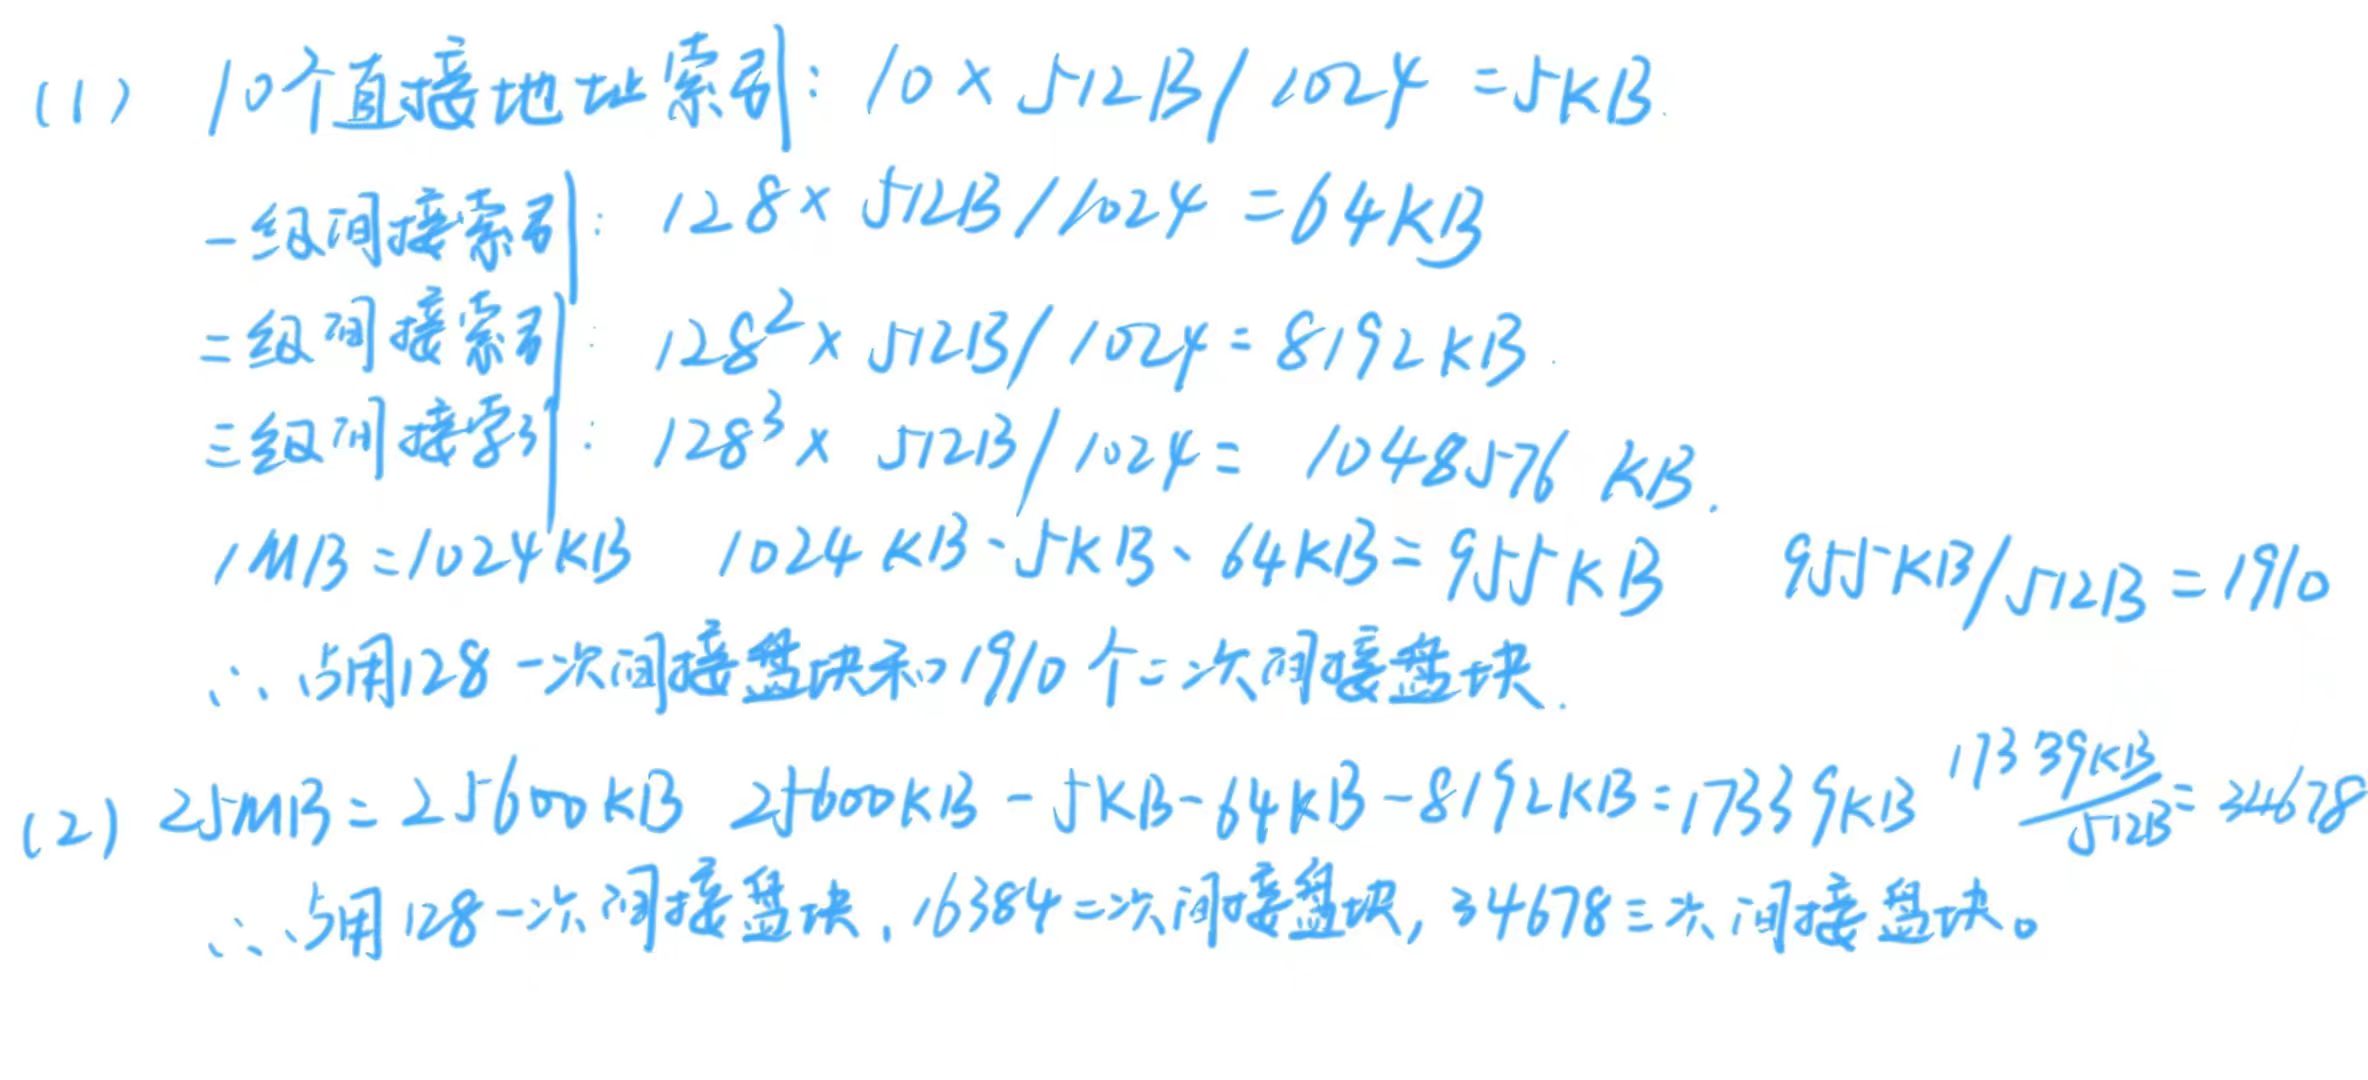 (1) 10个直接地址索引: 10 × 512B / 1024 = 5KB.
一级间接索引: 128 × 512B / 1024 = 64KB
二级间接索引: 128² × 512B / 1024 = 8192KB.
三级间接索引: 128³ × 512B / 1024 = 1048576 KB.
1MB = 1024KB 1024KB - 5KB - 64KB = 955KB 955KB / 512B = 1910
∴ 占用128一次间接盘块和1910个二次间接盘块.
(2) 25MB = 25600KB 25600KB - 5KB - 64KB - 8192KB = 17339KB 17339KB / 512B = 34678
∴ 占用128一次间接盘块, 16384二次间接盘块, 34678三次间接盘块。